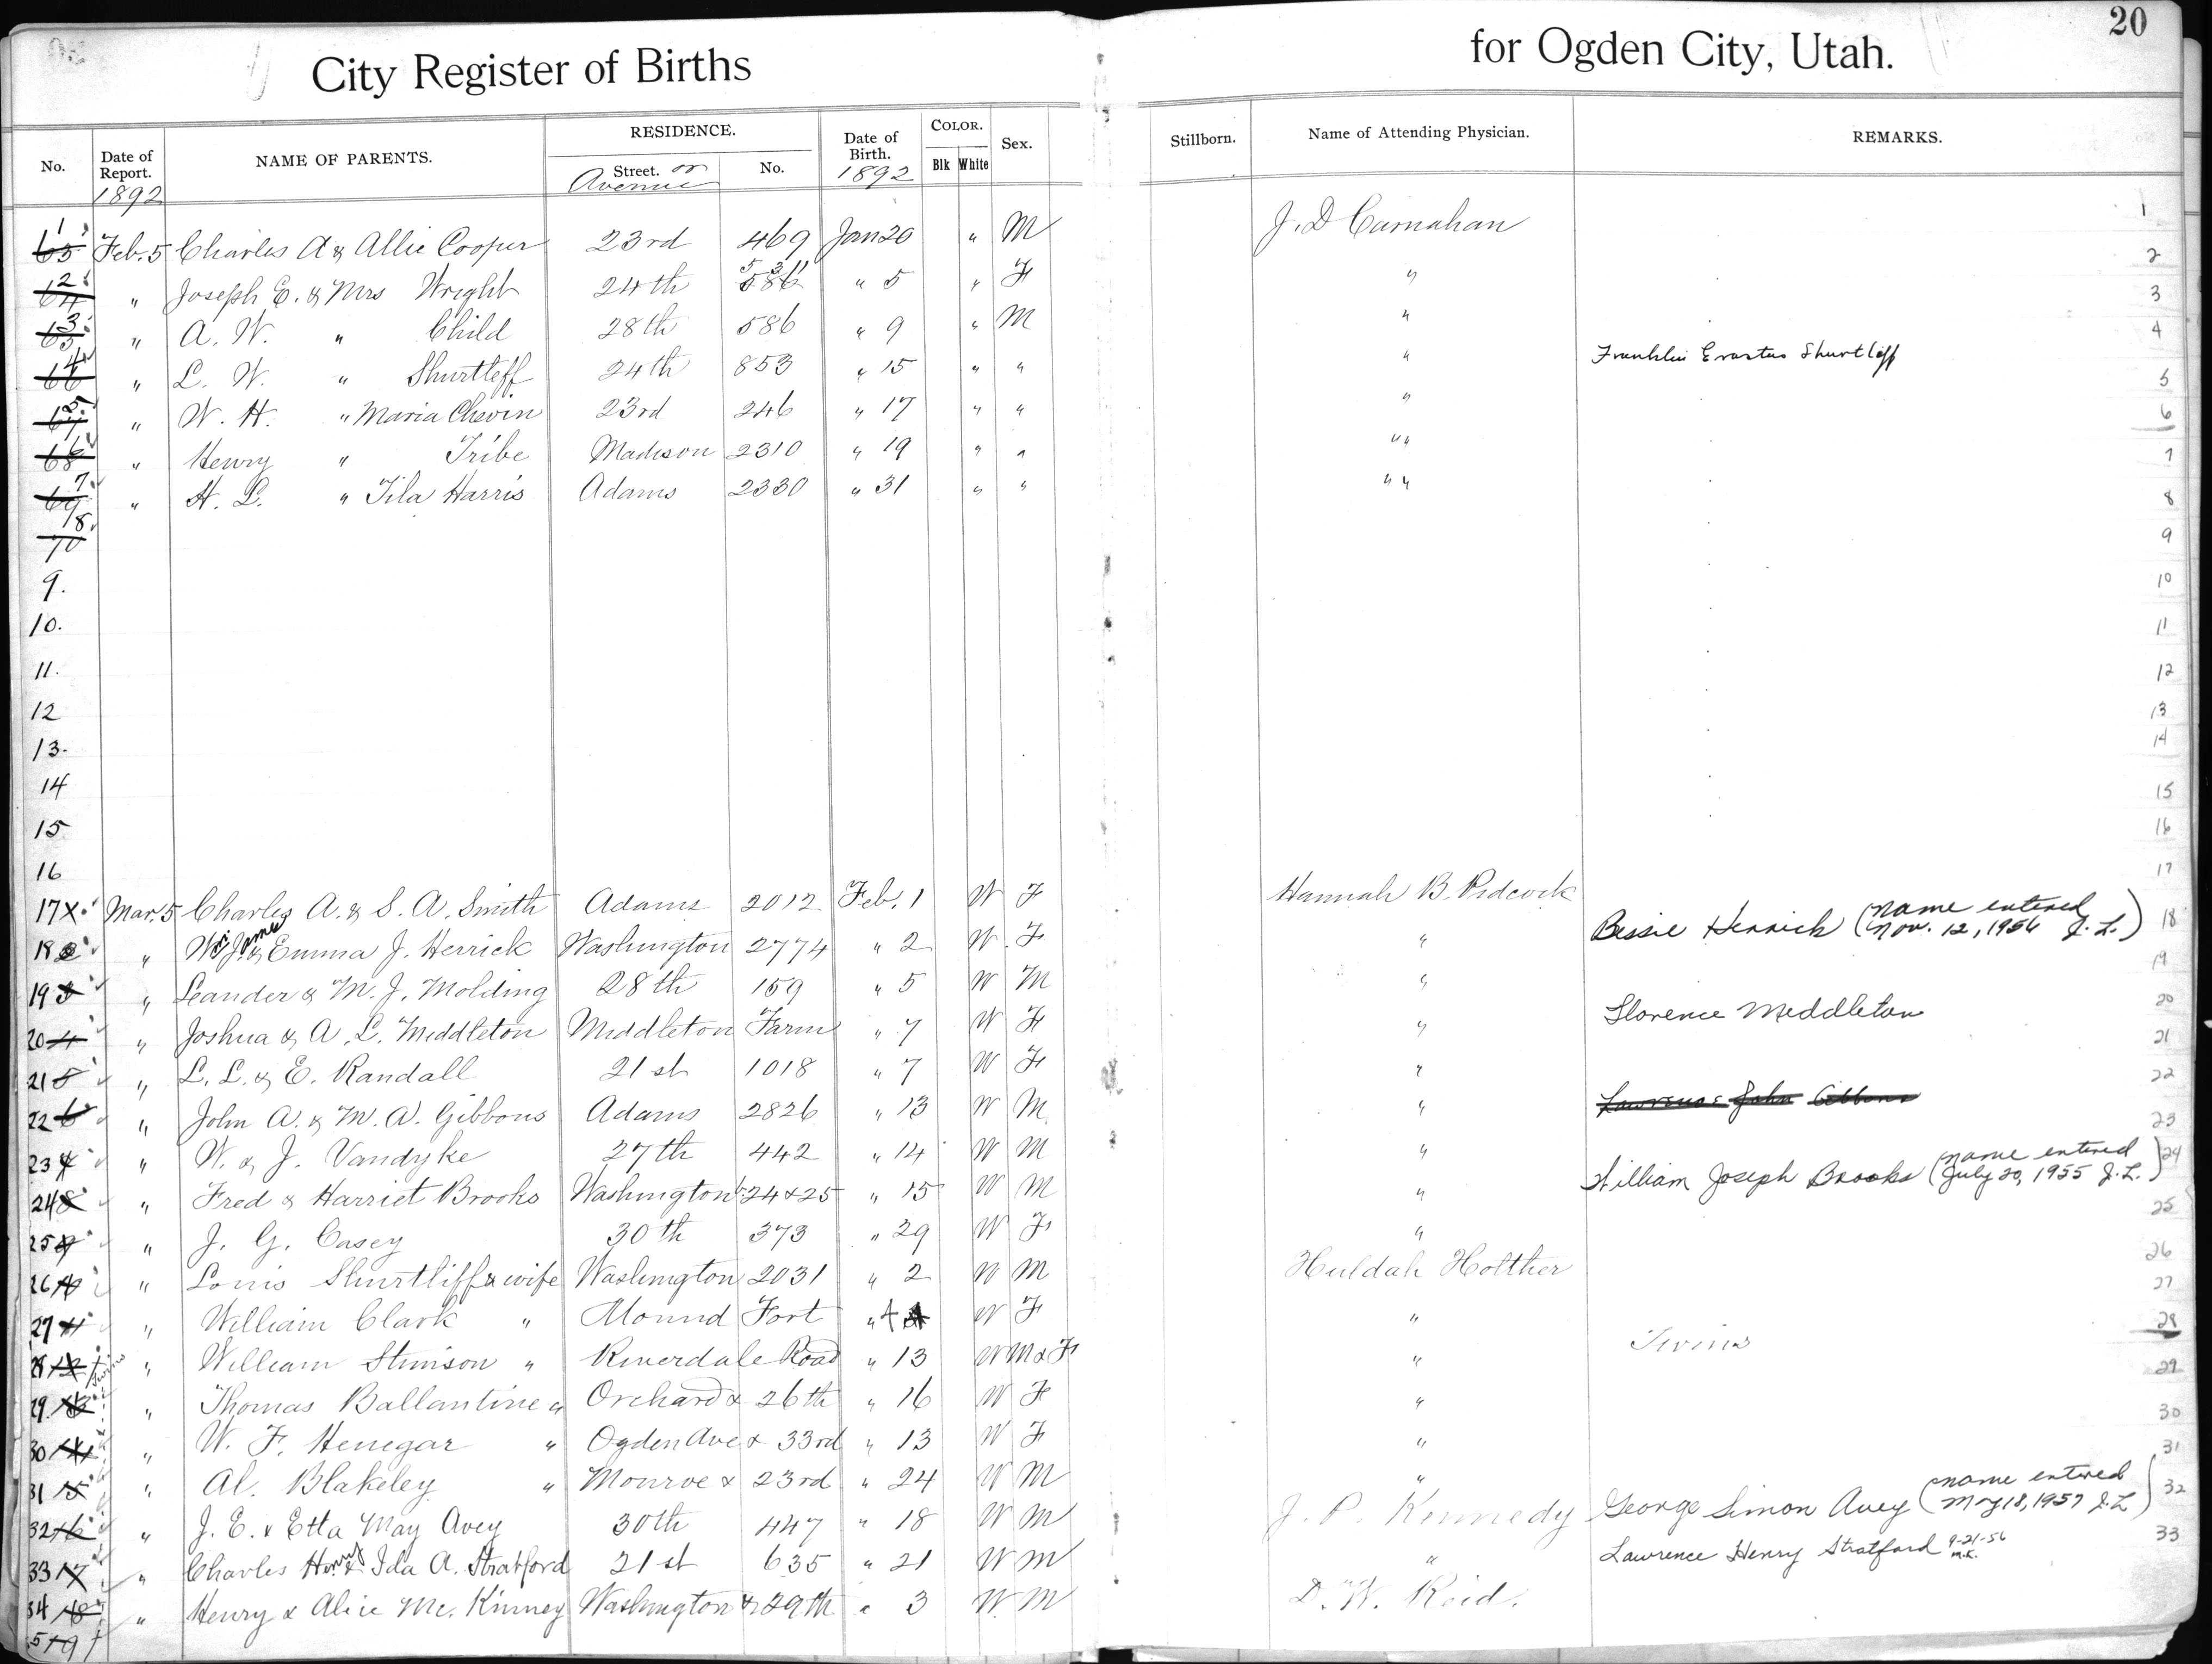 20
City Register of Births for Ogden City, Utah.
No. Date of Report. NAME OF PARENTS. RESIDENCE. Date of Birth. COLOR. Sex. Stillborn. Name of Attending Physician. REMARKS.
Street. or Avenue No. Blk White
1892 1892
1 63 Feb. 5 Charles A & Allie Cooper 23rd 469 Jan 20 " M J. D Carnahan 1
2 64 " Joseph E. & Mrs Wright 24th 586 " 5 " F " 2
3 65 " A. W. " Child 28th 586 " 9 " M " 3
4 66 " L. W. " Shurtleff 24th 853 " 15 " " " Franklin Erastus Shurtliff 4
5 67 " W. H. " Maria Chevin 23rd 246 " 17 " " " 5
6 68 " Henry " Tribe Madison 2310 " 19 " " " " 6
7 69 " H. L. " Tila Harris Adams 2330 " 31 " " " " 7
8 70 8
9. 9
10. 10
11. 11
12 12
13. 13
14 14
15 15
16 16
17 x Mar. 5 Charles A. & S. A. Smith Adams 2012 Feb. 1 W F Hannah B. Pidcock 17
18 2 " Wm James & Emma J. Herrick Washington 2774 " 2 W F " Bessie Herrick (name entered Nov. 12, 1956 J. L.) 18
19 3 " Leander & M. J. Molding 28th 159 " 5 W M " 19
20 4 " Joshua & A. L. Middleton Middleton Farm " 7 W F " Florence Middleton 20
21 5 " L. L. & E. Randall 21st 1018 " 7 W F " 21
22 6 " John A. & M. A. Gibbons Adams 2826 " 13 W M " Lawrence John Gibbons 22
23 7 " W. & J. Vandyke 27th 442 " 14 W M " 23
24 8 " Fred & Harriet Brooks Washington 24 & 25 " 15 W M " William Joseph Brooks (name entered July 20, 1955 J. L.) 24
25 9 " J. G. Casey 30th 373 " 29 W F " 25
26 10 " Louis Shurtliff & wife Washington 2031 " 2 W M Huldah Holther 26
27 11 " William Clark " Mound Fort " 4 W F " 27
28 12 Twins " William Stimson " Riverdale Road " 13 W M & F " Twins 28
29 13 " Thomas Ballantine " Orchard & 26th " 16 W F " 29
30 14 " W. F. Henegar " Ogden Ave & 33rd " 13 W F " 30
31 15 " Al. Blakeley " Monroe & 23rd " 24 W M " 31
32 16 " J. E. & Etta May Avey 30th 447 " 18 W M J. P. Kennedy George Simon Avey (name entered May 18, 1957 J. L) 32
33 17 " Charles Henry & Ida A. Stratford 21st 635 " 21 W M " Lawrence Henry Stratford 9-21-56 M.K. 33
34 18 " Henry & Alice Mc. Kinney Washington & 29th " 3 W. M D. W. Reid.
5 19